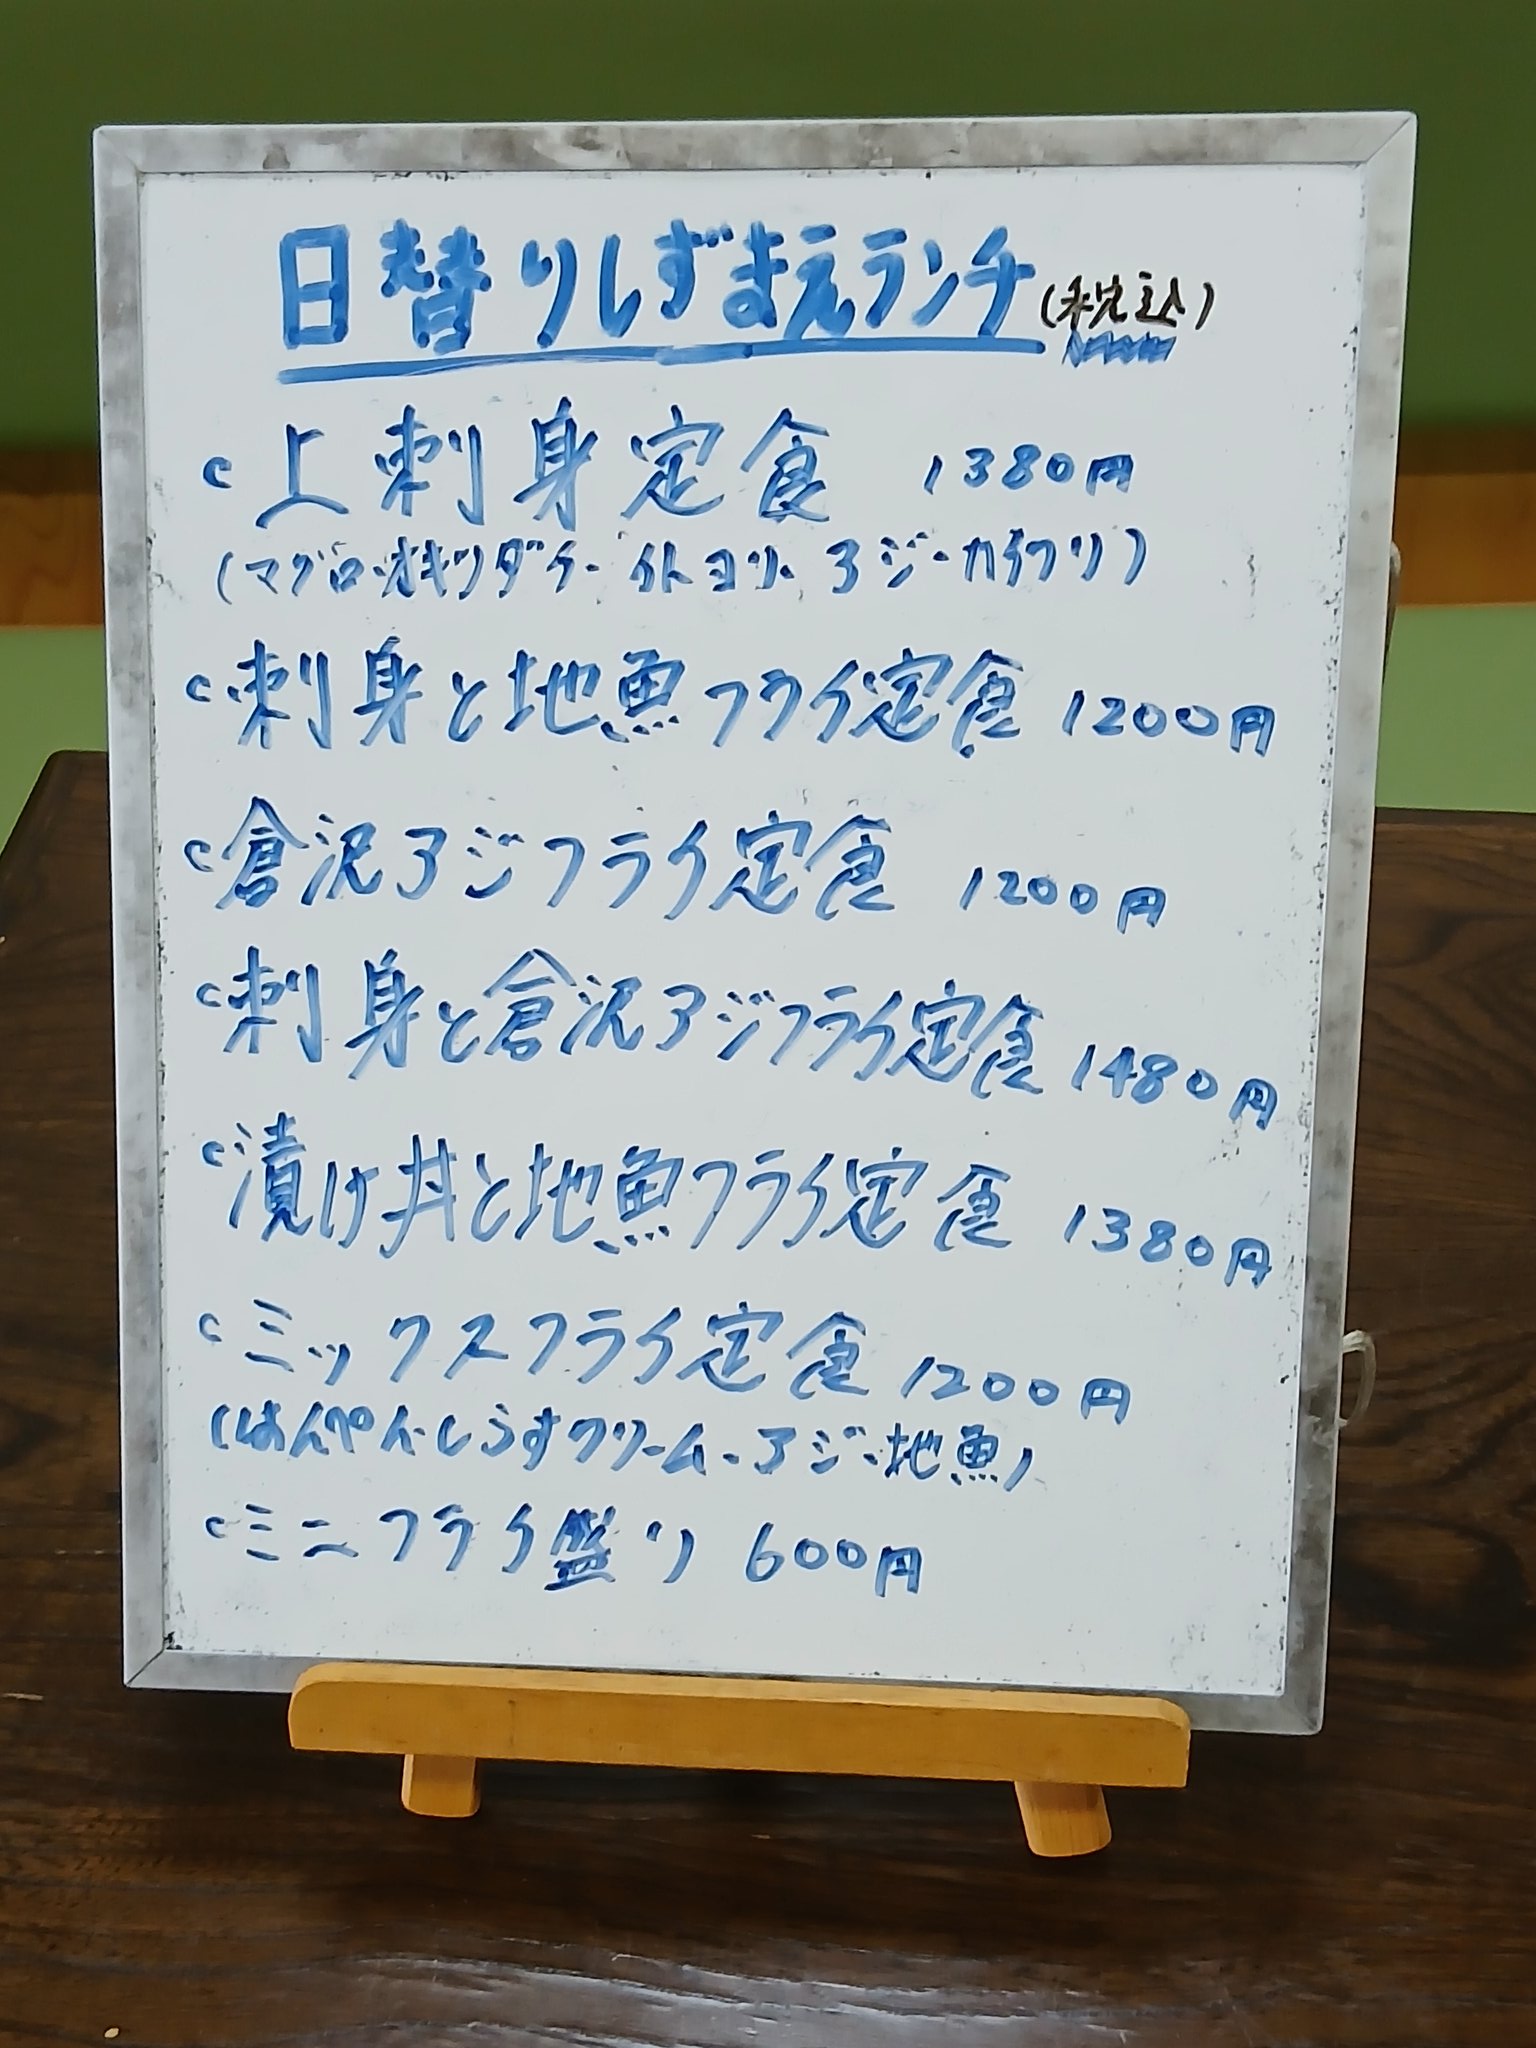 日替りしずまえランチ(税込)
・上刺身定食 1380円
(マグロ・オキツダイ・イトヨリ・アジ・カイワリ)
・刺身と地魚フライ定食 1200円
・倉沢アジフライ定食 1200円
・刺身と倉沢アジフライ定食 1480円
・漬け丼と地魚フライ定食 1380円
・ミックスフライ定食 1200円
(はんぺん・しらすクリーム・アジ・地魚)
・ミニフライ盛り 600円